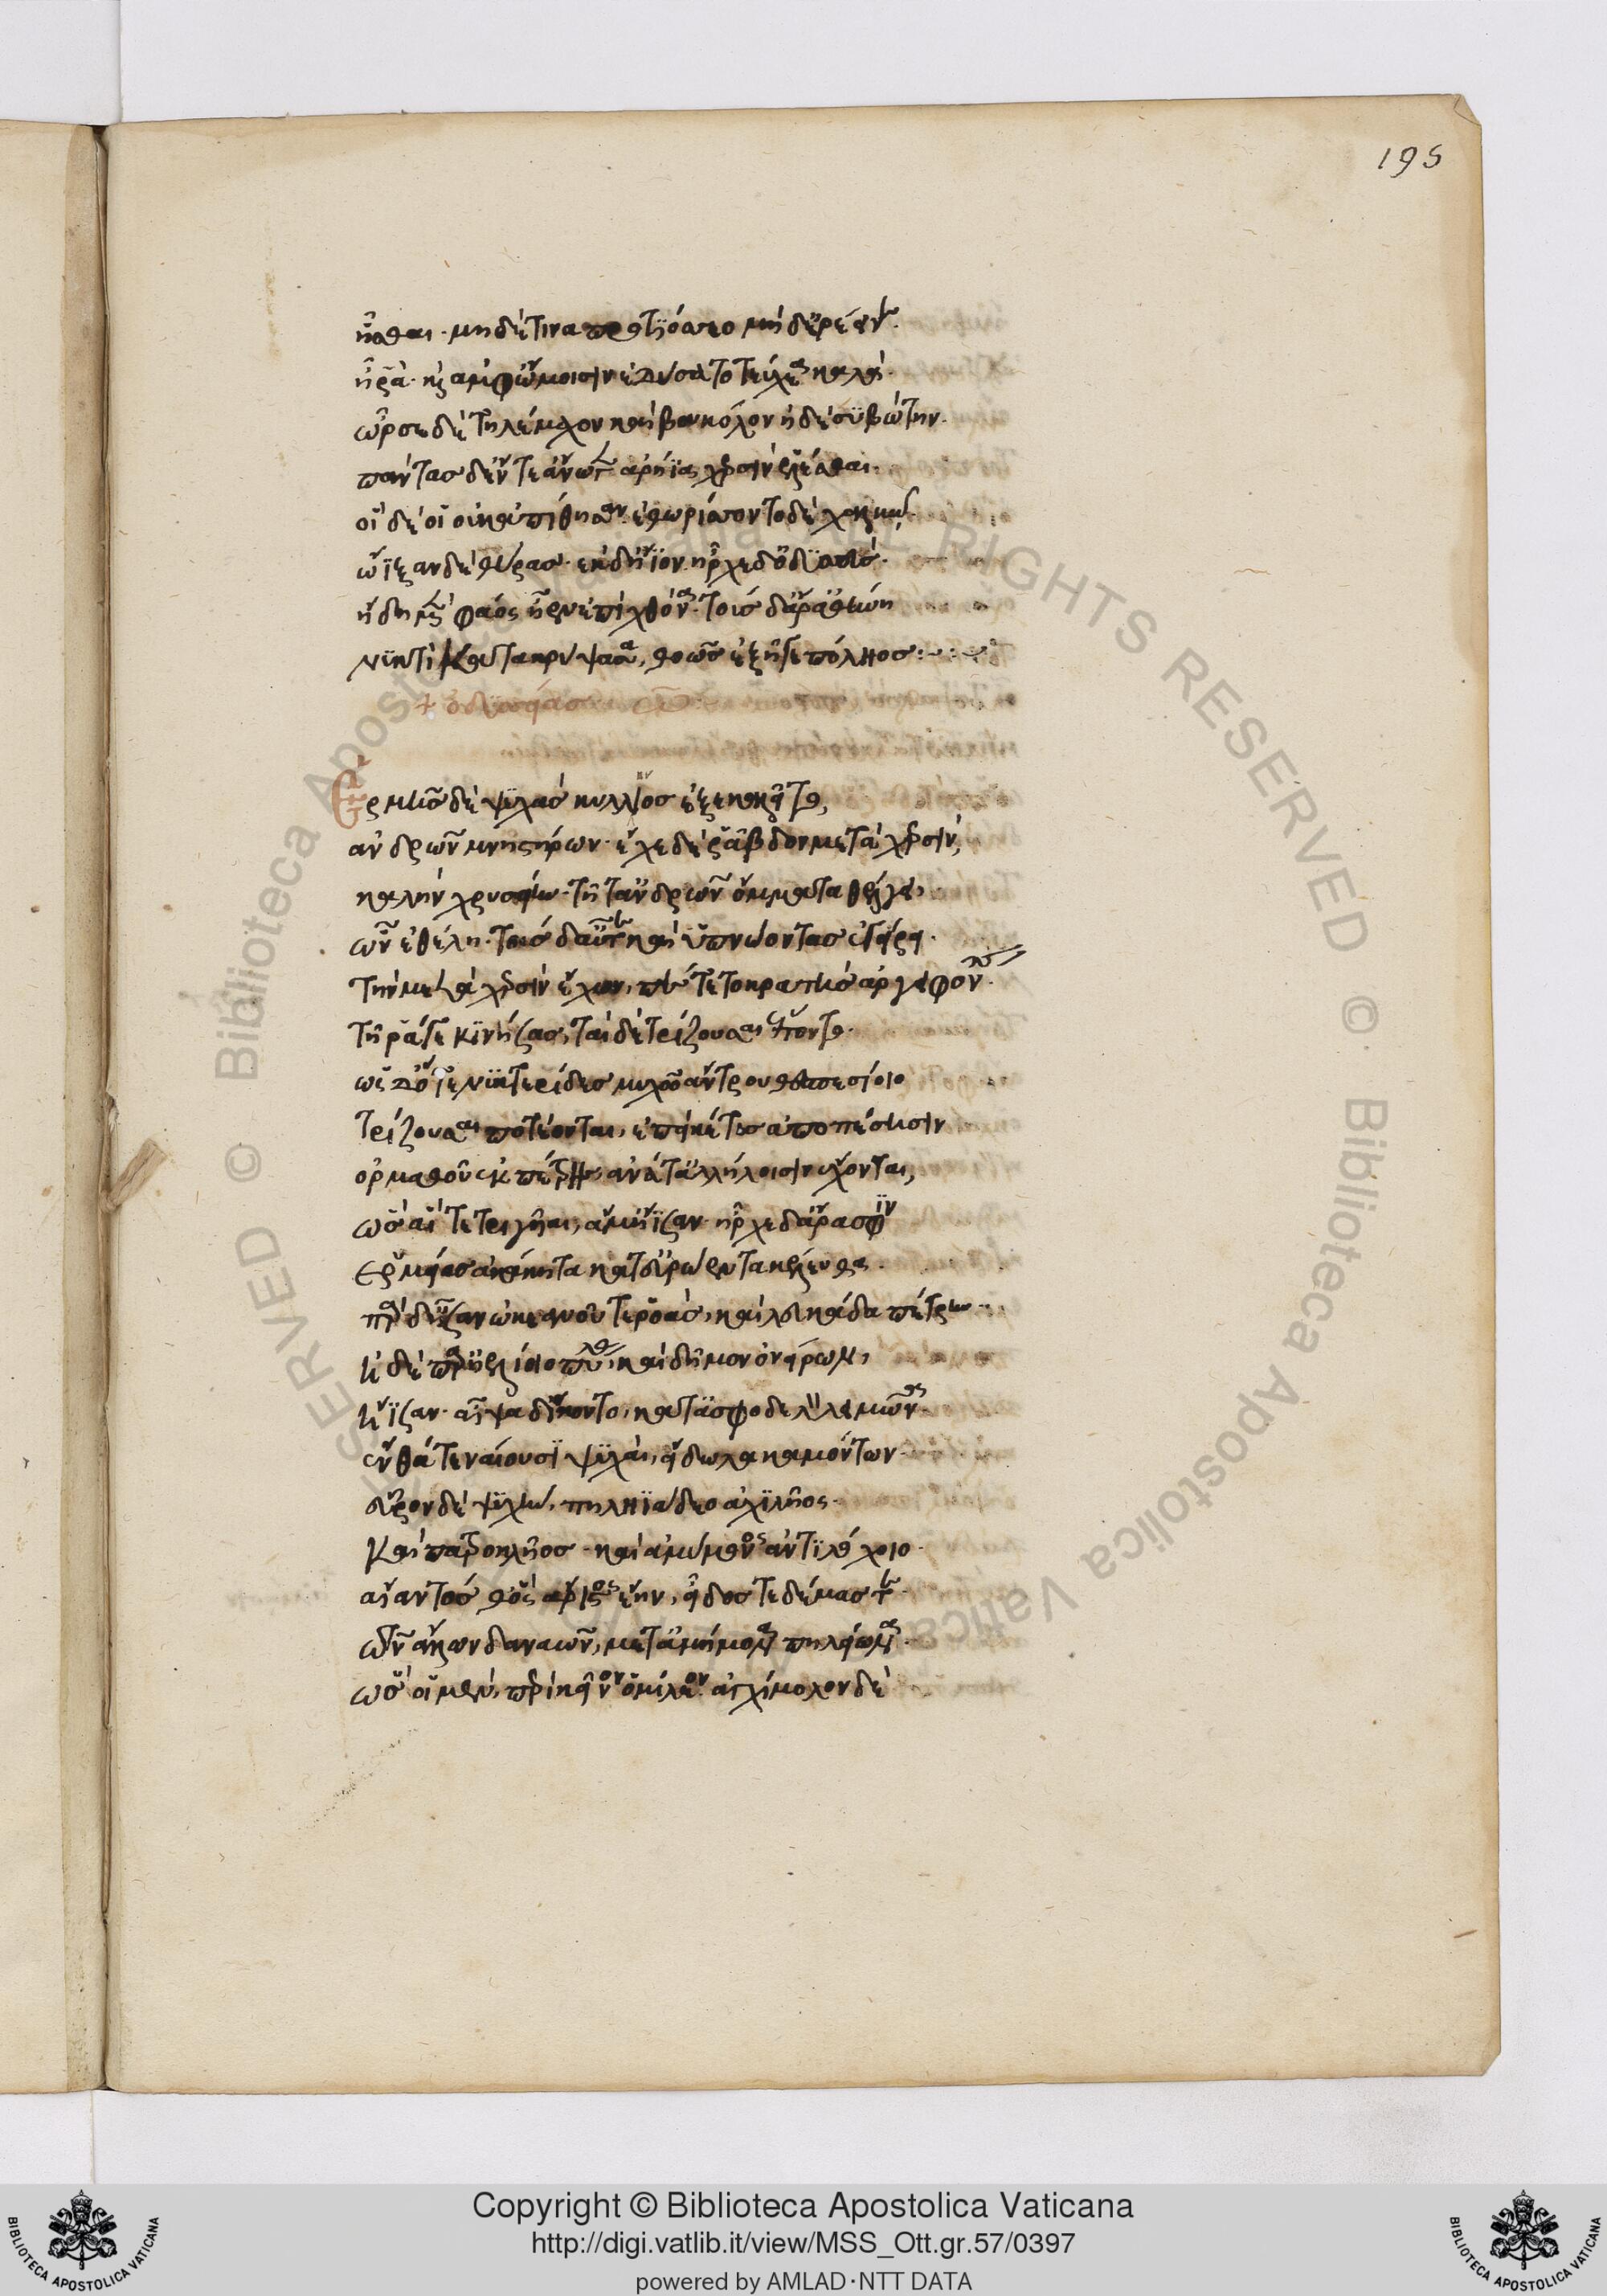 195
ἧσθαι· μηδέ τινα προτιόσσεο μηδ' ἐρέεινε.
ἦ ῥα· καὶ ἀμφ' ὤμοισιν ἐδύσατο τεύχεα καλά.
ὦρσε δὲ τηλέμαχον καὶ βουκόλον ἠδὲ συβώτην.
πάντας δ' ἔντε' ἄνωγεν ἀρήϊα χερσὶν ἑλέσθαι.
οἱ δέ οἱ οὐκ ἀπίθησαν. ἐθωρήσσοντο δὲ χαλκῷ.
ὤϊξαν δὲ θύρας· ἐκ δ' ἤϊον. ἦρχε δ' ὀδυσσεύς.
ἤδη μὲν φάος ἦεν ἐπὶ χθόνα· τοὺς δ' ἄρ' ἀθήνη
νυκτὶ κατακρύψασα, θοῶς ἐξῆγε πόληος:
+ ὀδυσσείας ω
Ἑρμῆς δὲ ψυχὰς κυλλήνιος ἐξεκαλεῖτο,
ἀνδρῶν μνηστήρων· ἔχε δὲ ῥάβδον μετὰ χερσίν,
καλὴν χρυσείην· τῇ τ' ἀνδρῶν ὄμματα θέλγει,
ὧν ἐθέλει. τοὺς δ' αὖτε καὶ ὑπνώοντας ἐγείρει.
τὴν μετὰ χερσὶν ἔχων, πέτετο κρατὺς ἀργειφόντης.
τῇ ῥ' ἄγε κινήσας, ταὶ δὲ τρίζουσαι ἕποντο.
ὡς δ' ὅτε νυκτερίδες μυχῷ ἄντρου θεσπεσίοιο
τρίζουσαι ποτέονται, ἐπεί κέ τις ἀποπέσῃσιν
ὁρμαθοῦ ἐκ πέτρης, ἀνά τ' ἀλλήλοισιν ἔχονται,
ὣς αἱ τετριγυῖαι, ἅμ' ἤϊσαν· ἦρχε δ' ἄρα σφιν
ἑρμείας ἀκάκητα κατ' εὐρώεντα κέλευθα.
πὰρ δ' ἴσαν ὠκεανοῦ τε ῥοάς, καὶ λευκάδα πέτρην.
ἠδὲ παρ' ἠελίοιο πύλας, καὶ δῆμον ὀνείρων,
ἤϊσαν· αἶψα δ' ἵκοντο, κατ' ἀσφοδελὸν λειμῶνα.
ἔνθά τε ναίουσι ψυχαί, εἴδωλα καμόντων.
εὗρον δὲ ψυχὴν, πηληϊάδεω ἀχιλῆος.
καὶ πατροκλῆος· καὶ ἀμύμονος ἀντιλόχοιο.
αἴαντός θ' ὃς ἄριστος ἔην, εἶδός τε δέμας τε
τῶν ἄλλων δαναῶν, μετ' ἀμύμονα πηλείωνα.
ὣς οἱ μὲν, περὶ κεῖνον ὁμίλεον. ἀγχίμολον δὲ
Copyright © Biblioteca Apostolica Vaticana
http://digi.vatlib.it/view/MSS_Ott.gr.57/0397
powered by AMLAD·NTT DATA